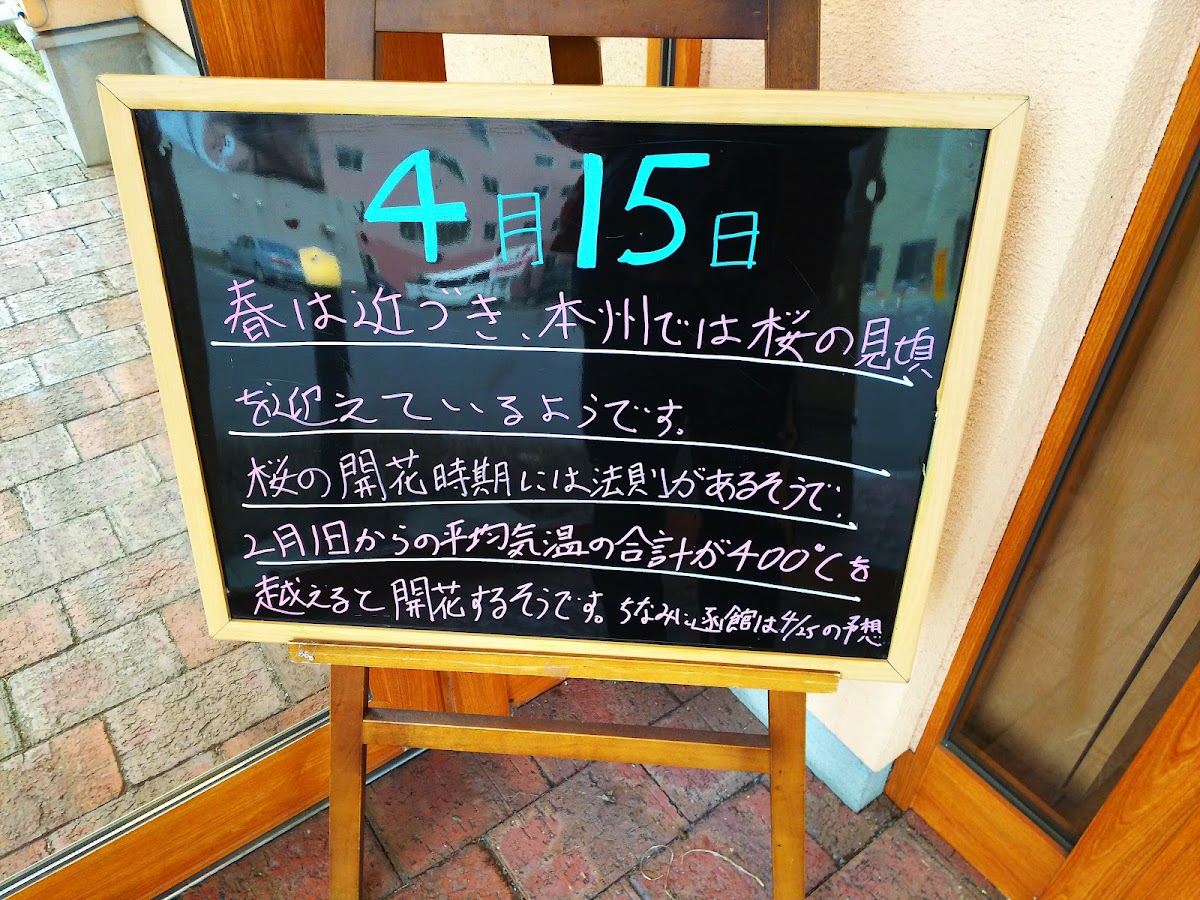 4月15日
春は近づき、本州では桜の見頃
を迎えているようです。
桜の開花時期には法則があるそうで、
2月1日からの平均気温の合計が400℃を
越えると開花するそうです。ちなみに函館は4/25の予想